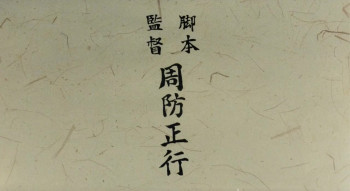 脚本
監督
周防正行